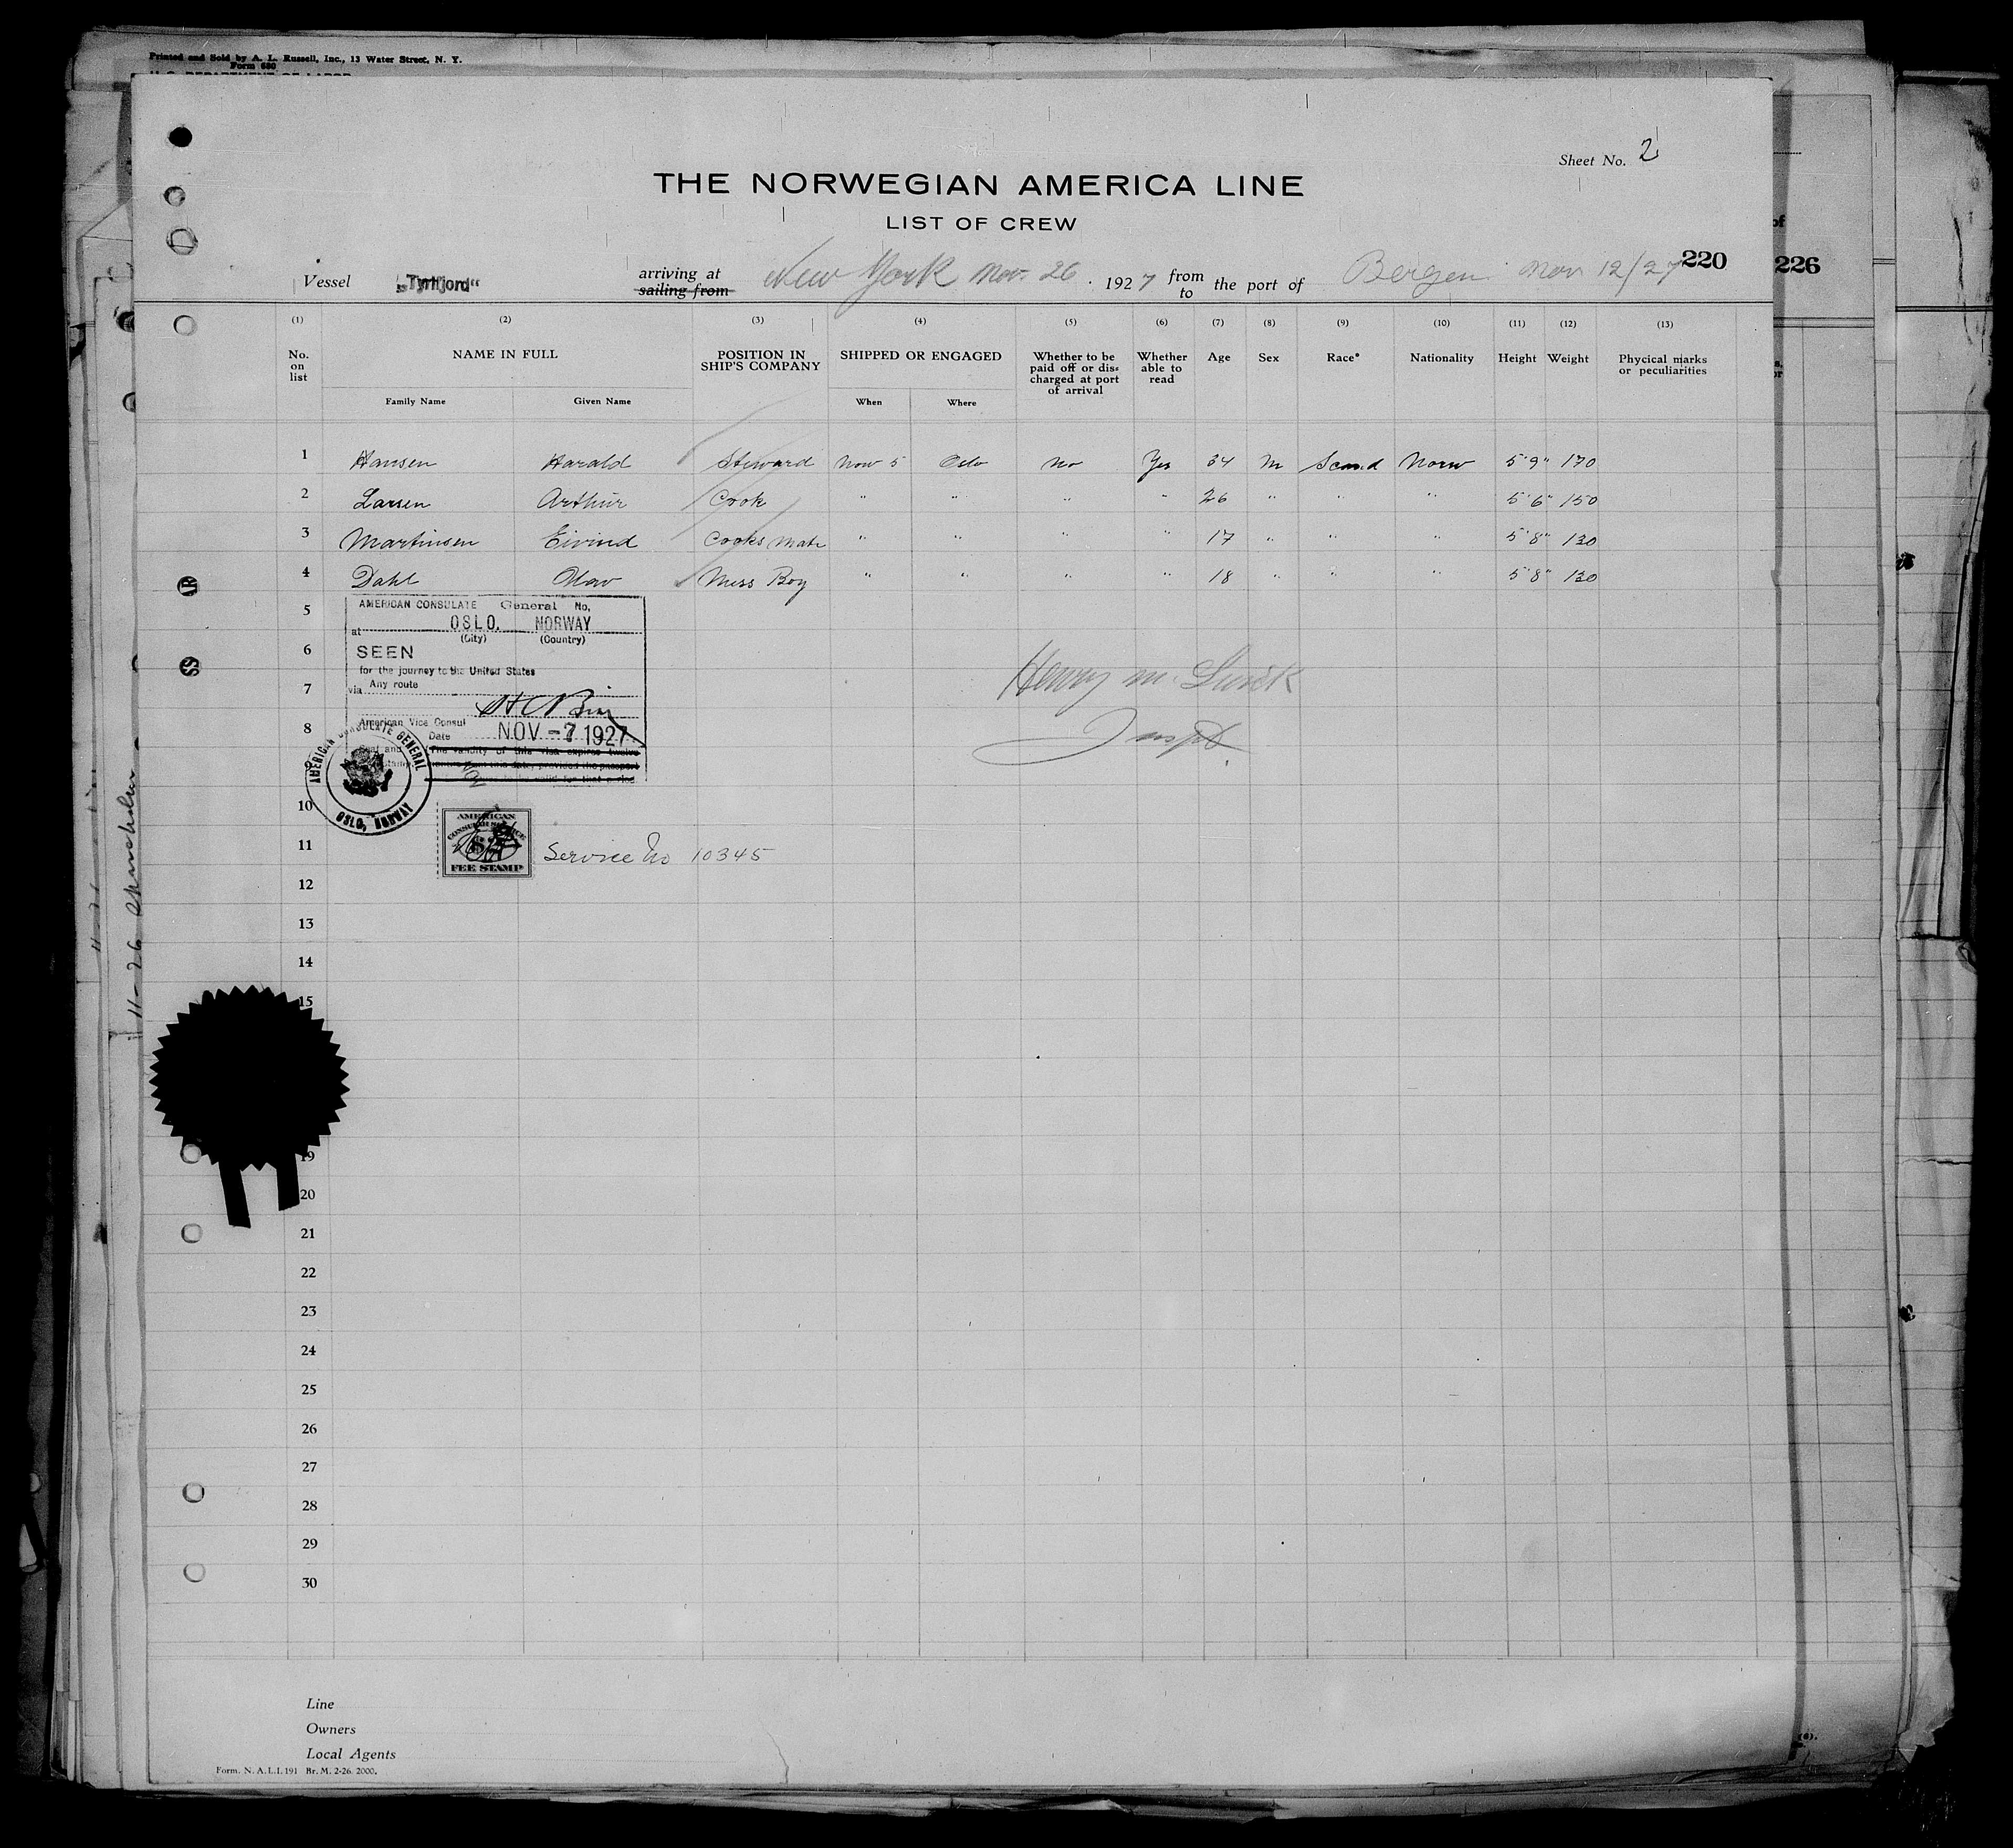 Printed and Sold by A. L. Russell, Inc., 13 Water Street, N. Y.
Form 680
U.S. DEPARTMENT OF LABOR
Sheet No. 2
THE NORWEGIAN AMERICA LINE
LIST OF CREW
220
226
Vessel "Tyrifjord" arriving at sailing from New York Nov. 26. 1927 from to the port of Bergen Nov 12/27
(1) (2) (3) (4) (5) (6) (7) (8) (9) (10) (11) (12) (13)
No. on list NAME IN FULL POSITION IN SHIP'S COMPANY SHIPPED OR ENGAGED Whether to be paid off or discharged at port of arrival Whether able to read Age Sex Race* Nationality Height Weight Phycical marks or peculiarities
Family Name Given Name When Where
1 Hansen Harald Steward Nov 5 Oslo No Yes 34 M Scand Norw 5'9" 170
2 Larsen Arthur Cook " " " " 26 " " " 5'6" 150
3 Martinsen Eivind Cooks Mate " " " " 17 " " " 5'8" 130
4 Dahl Olav Mess Boy " " " " 18 " " " 5'8" 130
5
6
7
8
9
10
11
12
13
14
15
19
20
21
22
23
24
25
26
27
28
29
30
AMERICAN CONSULATE General No,
at OSLO. NORWAY
(City) (Country)
SEEN
for the journey to the United States
via Any route
American Vice Consul
Date NOV -7 1927
Seal and
The validity of this visa expires twelve
from this date, provided the passport
valid for that period
AMERICAN CONSULATE GENERAL
OSLO, NORWAY
AMERICAN
CONSULAR SERVICE
FEE STAMP
Service No 10345
Henry M.
Inspt.
11-26
Line
Owners
Local Agents
Form. N. A. L. I. 191 Br. M. 2-26. 2000.